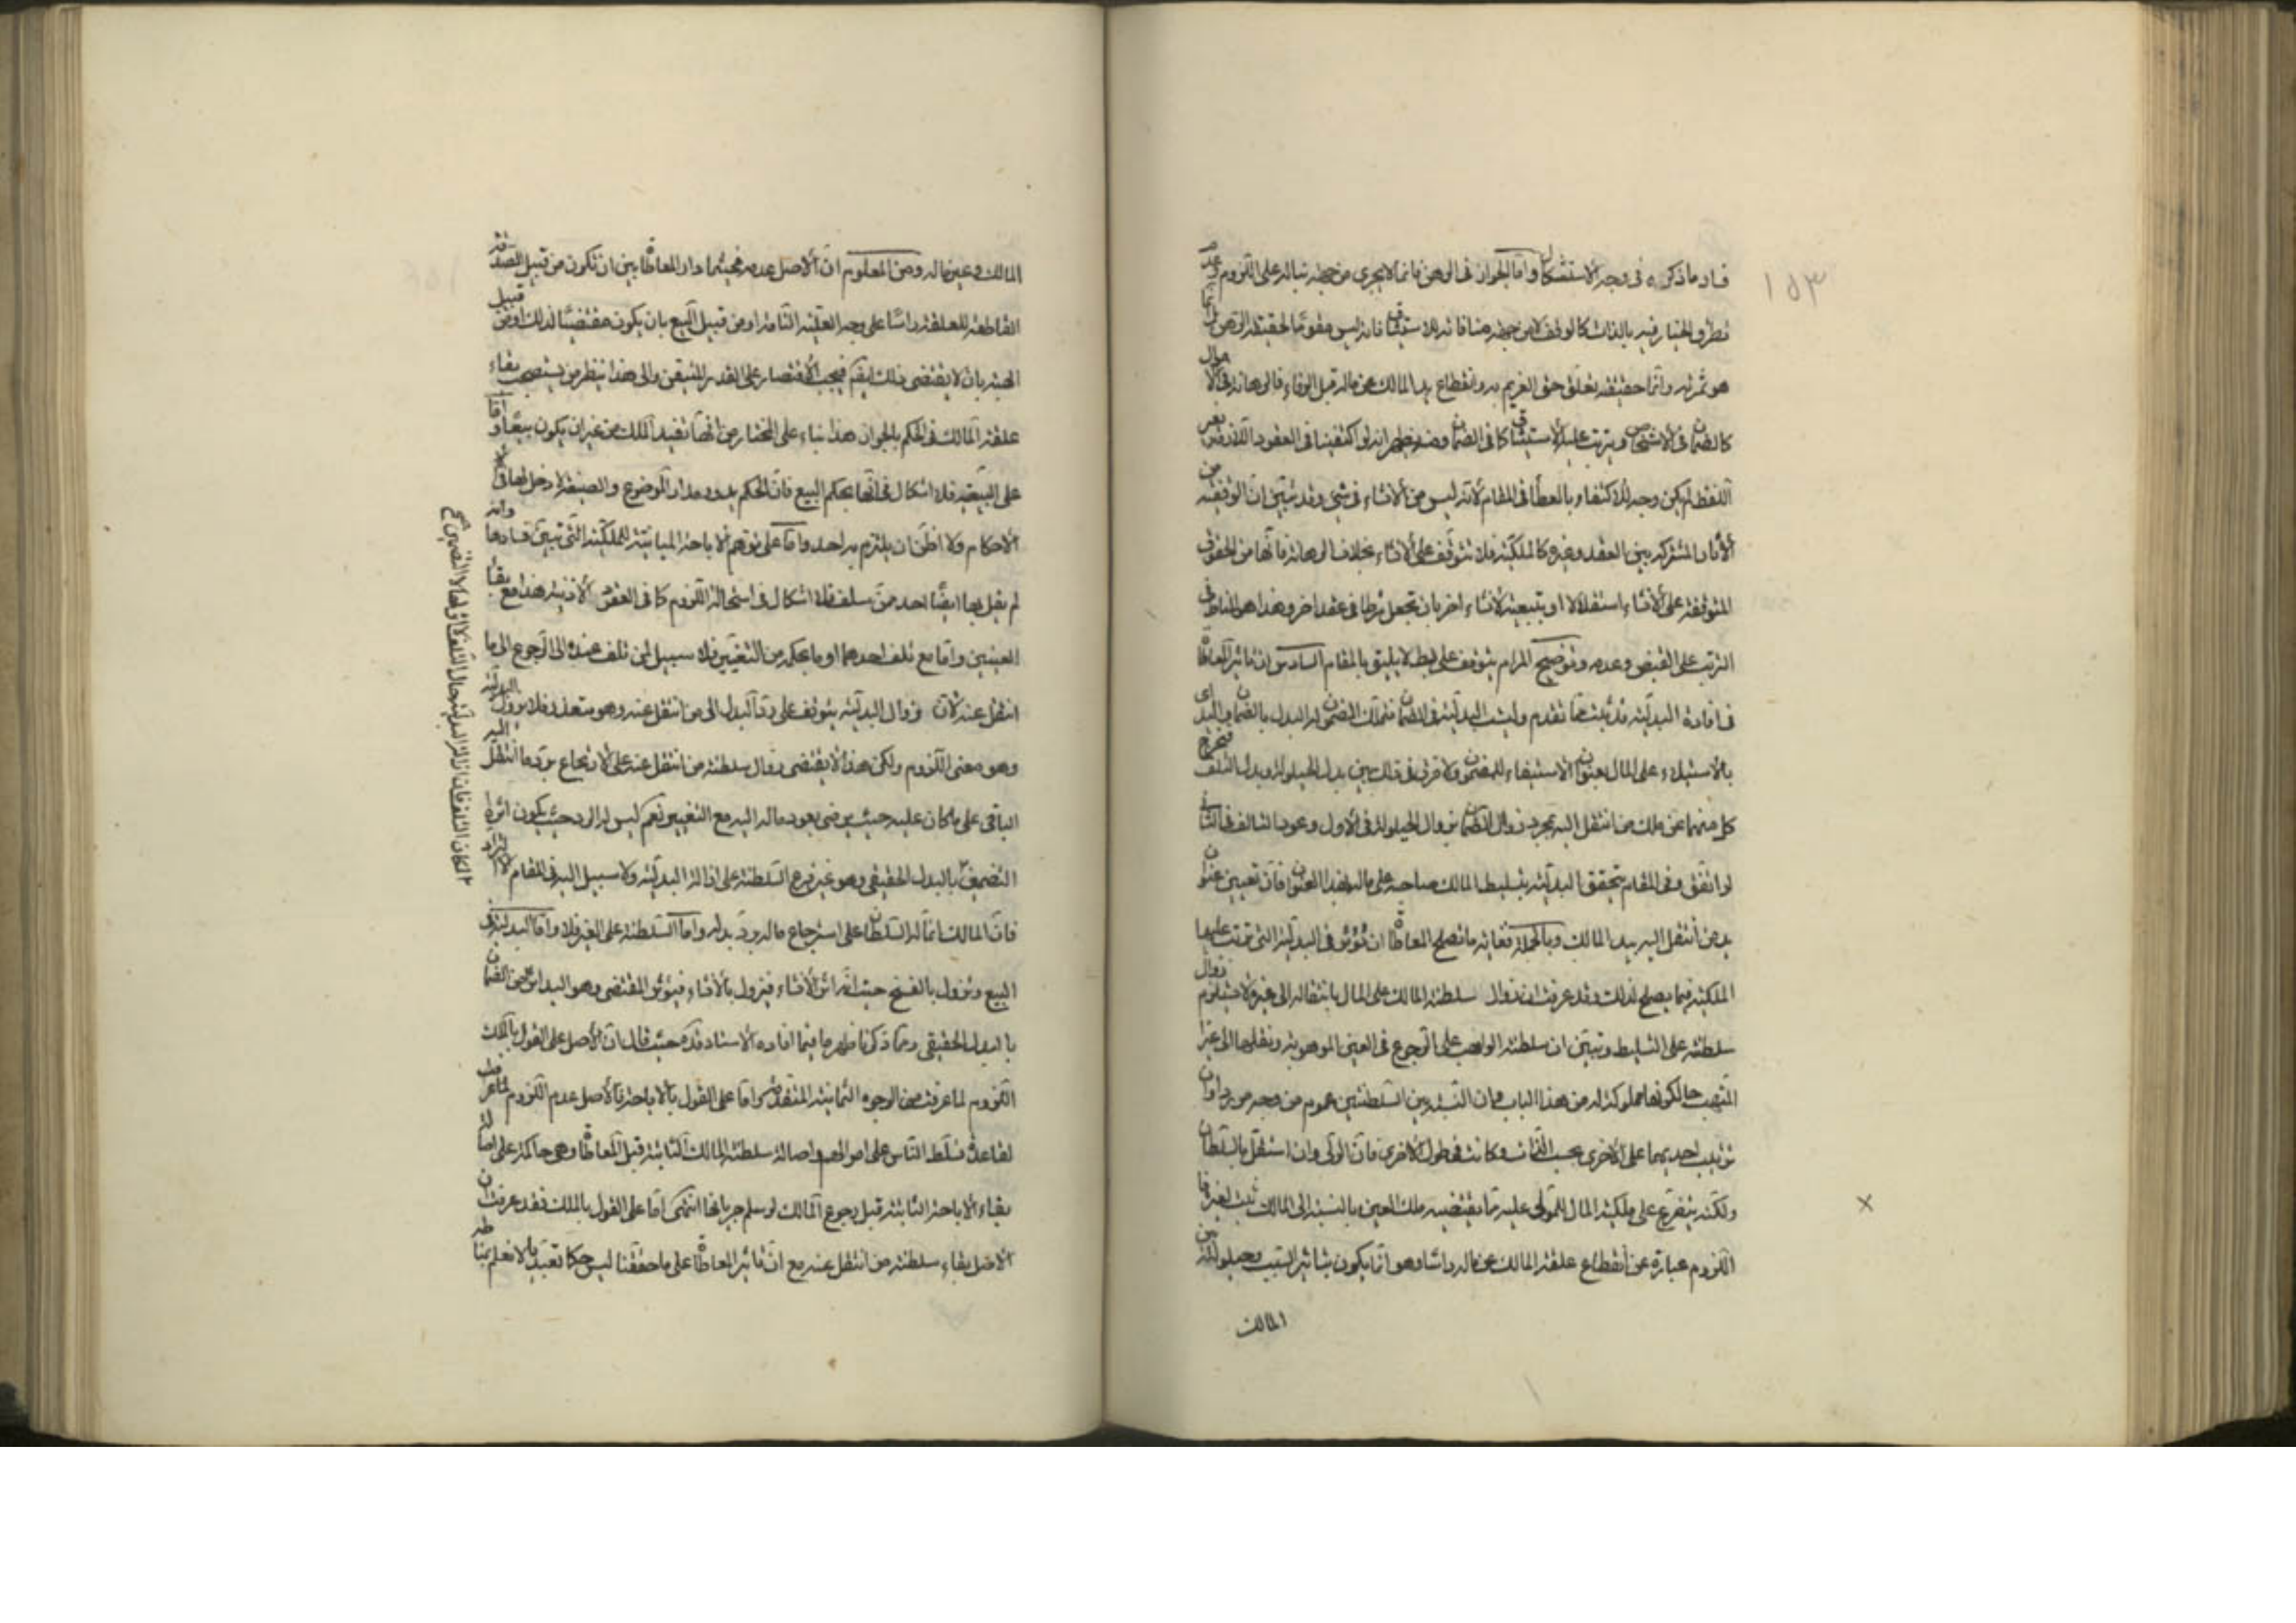 ١٥٣
فساد ما ذكره فى وجه الاستشكال وامّا الجواز فى الرهن فانما لا يجرى من جهة بنائه على اللزوم وعدم
تطرق الخيار فيه بالذات كالوقف لا من جهة منافاته للاستيثاق فانه ليس مقوّما لحقيقة الرهن بل انّما
هو ثمرته وانّما حقيقته تعلّق حق الغريم به وانقطاع يد المالك عن ماله قبل الوفاء فالرهانة فى الاموال
كالضمان فى الاشخاص ويترتب عليه الاستيثاق كما فى الضمان ومنه يظهر انه لو اكتفينا فى العقود اللازمة بغير
اللفظ لم يكن وجه للاكتفاء بالمعطاة فى المقام لانّه ليس من الانشاء فى شئ وقد تبيّن ان الوثيقة من
الآثار المشتركة بين العقد وغيره كالملكيّة فلا تتوقّف على الانشاء بخلاف الرهانة فانّها من الحقوق
المتوقفة على الانشاء استقلالا او بتبعيّة لانشاء اخر بان تجعل شرطا فى عقد اخر وهذا هو المناط فى
الترتب على القبض وعدمه وتوضيح المرام يتوقف على بسط لا يليق بالمقام السادس ان تاثير المعاطاة
فى افادة البدليّة قد تبيّنت مما تقدم وليست البدليّة فى الضمان فتملك المضمون له البدل بالضمان اى اليد
بالاستيلاء على المال بعنوان الاستيفاء للمضمون ولا فرق فى ذلك بين بدل الحيلولة وبدل التلف فيخرج
كل منهما عن ملك من انتقل اليه بمجرد زوال الضمان بزوال الحيلولة فى الاول وعود التالف فى الثانى
لو اتفق وفى المقام يتحقق البدليّة بتسليط المالك صاحبه على ماله بهذا العنوان فان تعيين عنوان
يد من انتقل اليه بيد المالك وبالجملة فغاية ما تصلح المعاطاة ان تؤثر فى البدليّة التى تترتب عليها
الملكيّة فيما يصلح لذلك وقد عرفت ان زوال سلطنة المالك على المال بانتقاله الى غيره لا يستلزم زوال
سلطنته على التسليط وتبيّن ان سلطنة الواهب على الرجوع فى العين الموهوبة ونقلها الى غير
المتّهب حال كونها مملوكة له من هذا الباب فان النسبة بين السلطنتين عموم من وجه من دون
ترتيب احديهما على الاخرى بحسب الذات وكانت فى طول الاخرى فانّ الولى وان استقلّ بالسلطان
ولكنه يتفرّع على ملكيّة المال للمولى عليه فما يقتضيه ملك العين بالنسبة الى المالك ثبت لغيره
اللزوم عبارة عن انقطاع علقة المالك عن ماله راسا وهو امّا يكون بتاثير السبب وحيلولته بين
المالك
المالك وعين ماله ومن المعلوم ان الاصل عدمه فحيثما دار المعاطاة بين ان تكون من قبيل الصدقة
القاطعة للعلقة راسا على وجه العلّية التامة او من قبيل البيع بان يكون مقتضيا لذلك او من قبيل
الهبة بان لا يقتضى ذلك ايضا فيجب الاقتصار على القدر المتيقن والى هذا ينظر من يستصحب بقاء
علقة المالك فى الحكم بالجواز هذا بناء على المختار من انها تفيد الملك من غير ان يكون بيعا وامّا
على البيعيّة فلا اشكال فى انها بحكم البيع فان الحكم يدور مدار الموضوع والصيغة لا دخل لها فى
الاحكام ولا اظن ان يلتزم به احد وامّا على توهم الاباحة المباينة للملكيّة التى تبيّن فسادها وانه
لم يقل بها ايضا احد ممن سلف فلا اشكال فى استحالة اللزوم كما فى العقود الاذنية هذا مع بقاء
العينين وامّا مع تلف احدهما او ما بحكمه من التغيير فلا سبيل لمن تلف عنده الى الرجوع الى ما
انتقل عنه لان زوال البدليّة يتوقف على ردّ البدل الى من انتقل عنه وهو متعذر فلا يزول البدليّة
وهو معنى اللزوم ولكن هذا لا يقتضى زوال سلطنة من انتقل عنه على الارتجاع بردّ ما انتقل اليه
الباقى على ما كان عليه حيث يرضى بعود ماله اليه مع التغيير نعم ليس له الرد حيث يكون اثره
التضمين بالبدل الحقيقى وهو غير فرع السلطنة على ازالة البدليّة ولا سبيل اليه فى المقام لا لزام
فانّ المالك انّما له السلطان على استرجاع ماله وردّ بدله وامّا السلطنة على الغير فلا وامّا البدليّة فى
البيع وتزول بالفسخ حيث انه اثر الانشاء فيزول بالانشاء فيؤثر المقتضى وهو اليد اثره من الضمان
بالبدل الحقيقى ومما ذكرنا ظهر ما فيما افاده الاستاد قده حيث قال ان الاصل على القول بالملك
اللزوم لما عرفت من الوجوه الثمانية المتقدمة وامّا على القول بالاباحة فالاصل عدم اللزوم لما عرفت
لقاعدة تسلّط الناس على اموالهم واصالة سلطنة المالك الثابتة قبل المعاطاة وهى حاكمة على اصالة
بقاء الاباحة الثابتة قبل رجوع المالك لو سلم جريانها انتهى امّا على القول بالملك فقد عرفت ان
الاصل بقاء سلطنة من انتقل عنه مع ان تاثير المعاطاة على ما حققنا ليس حكما تعبّديا لا نعلم مناطه